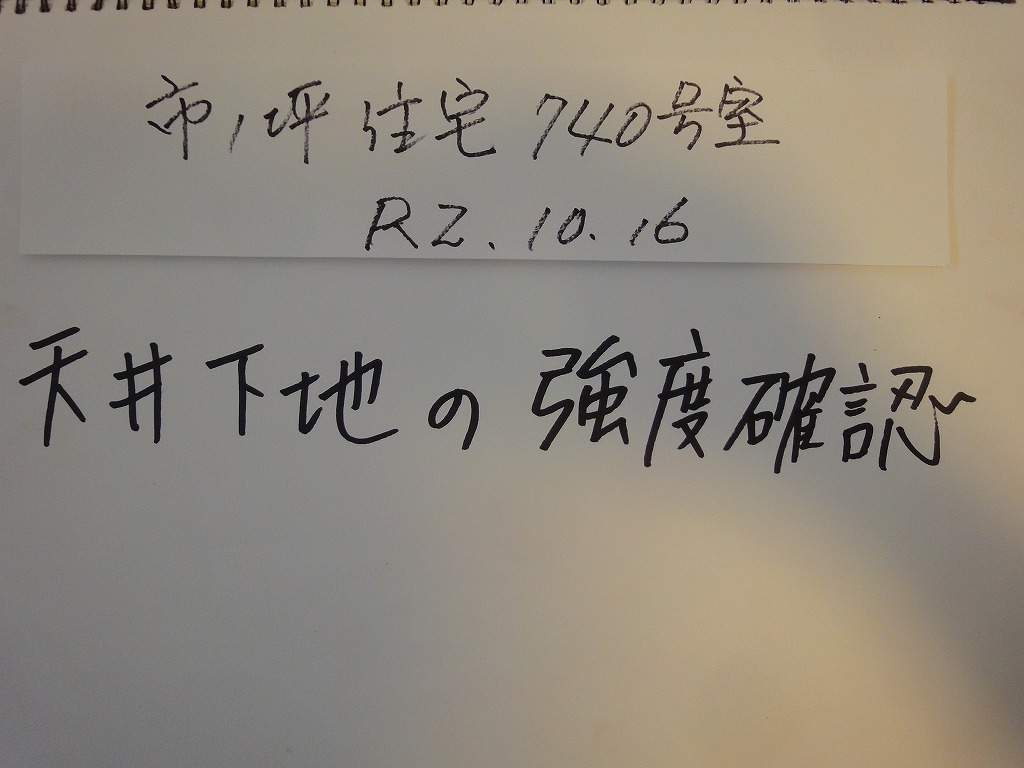 市ノ坪住宅 740号室
R2.10.16
天井下地の強度確認